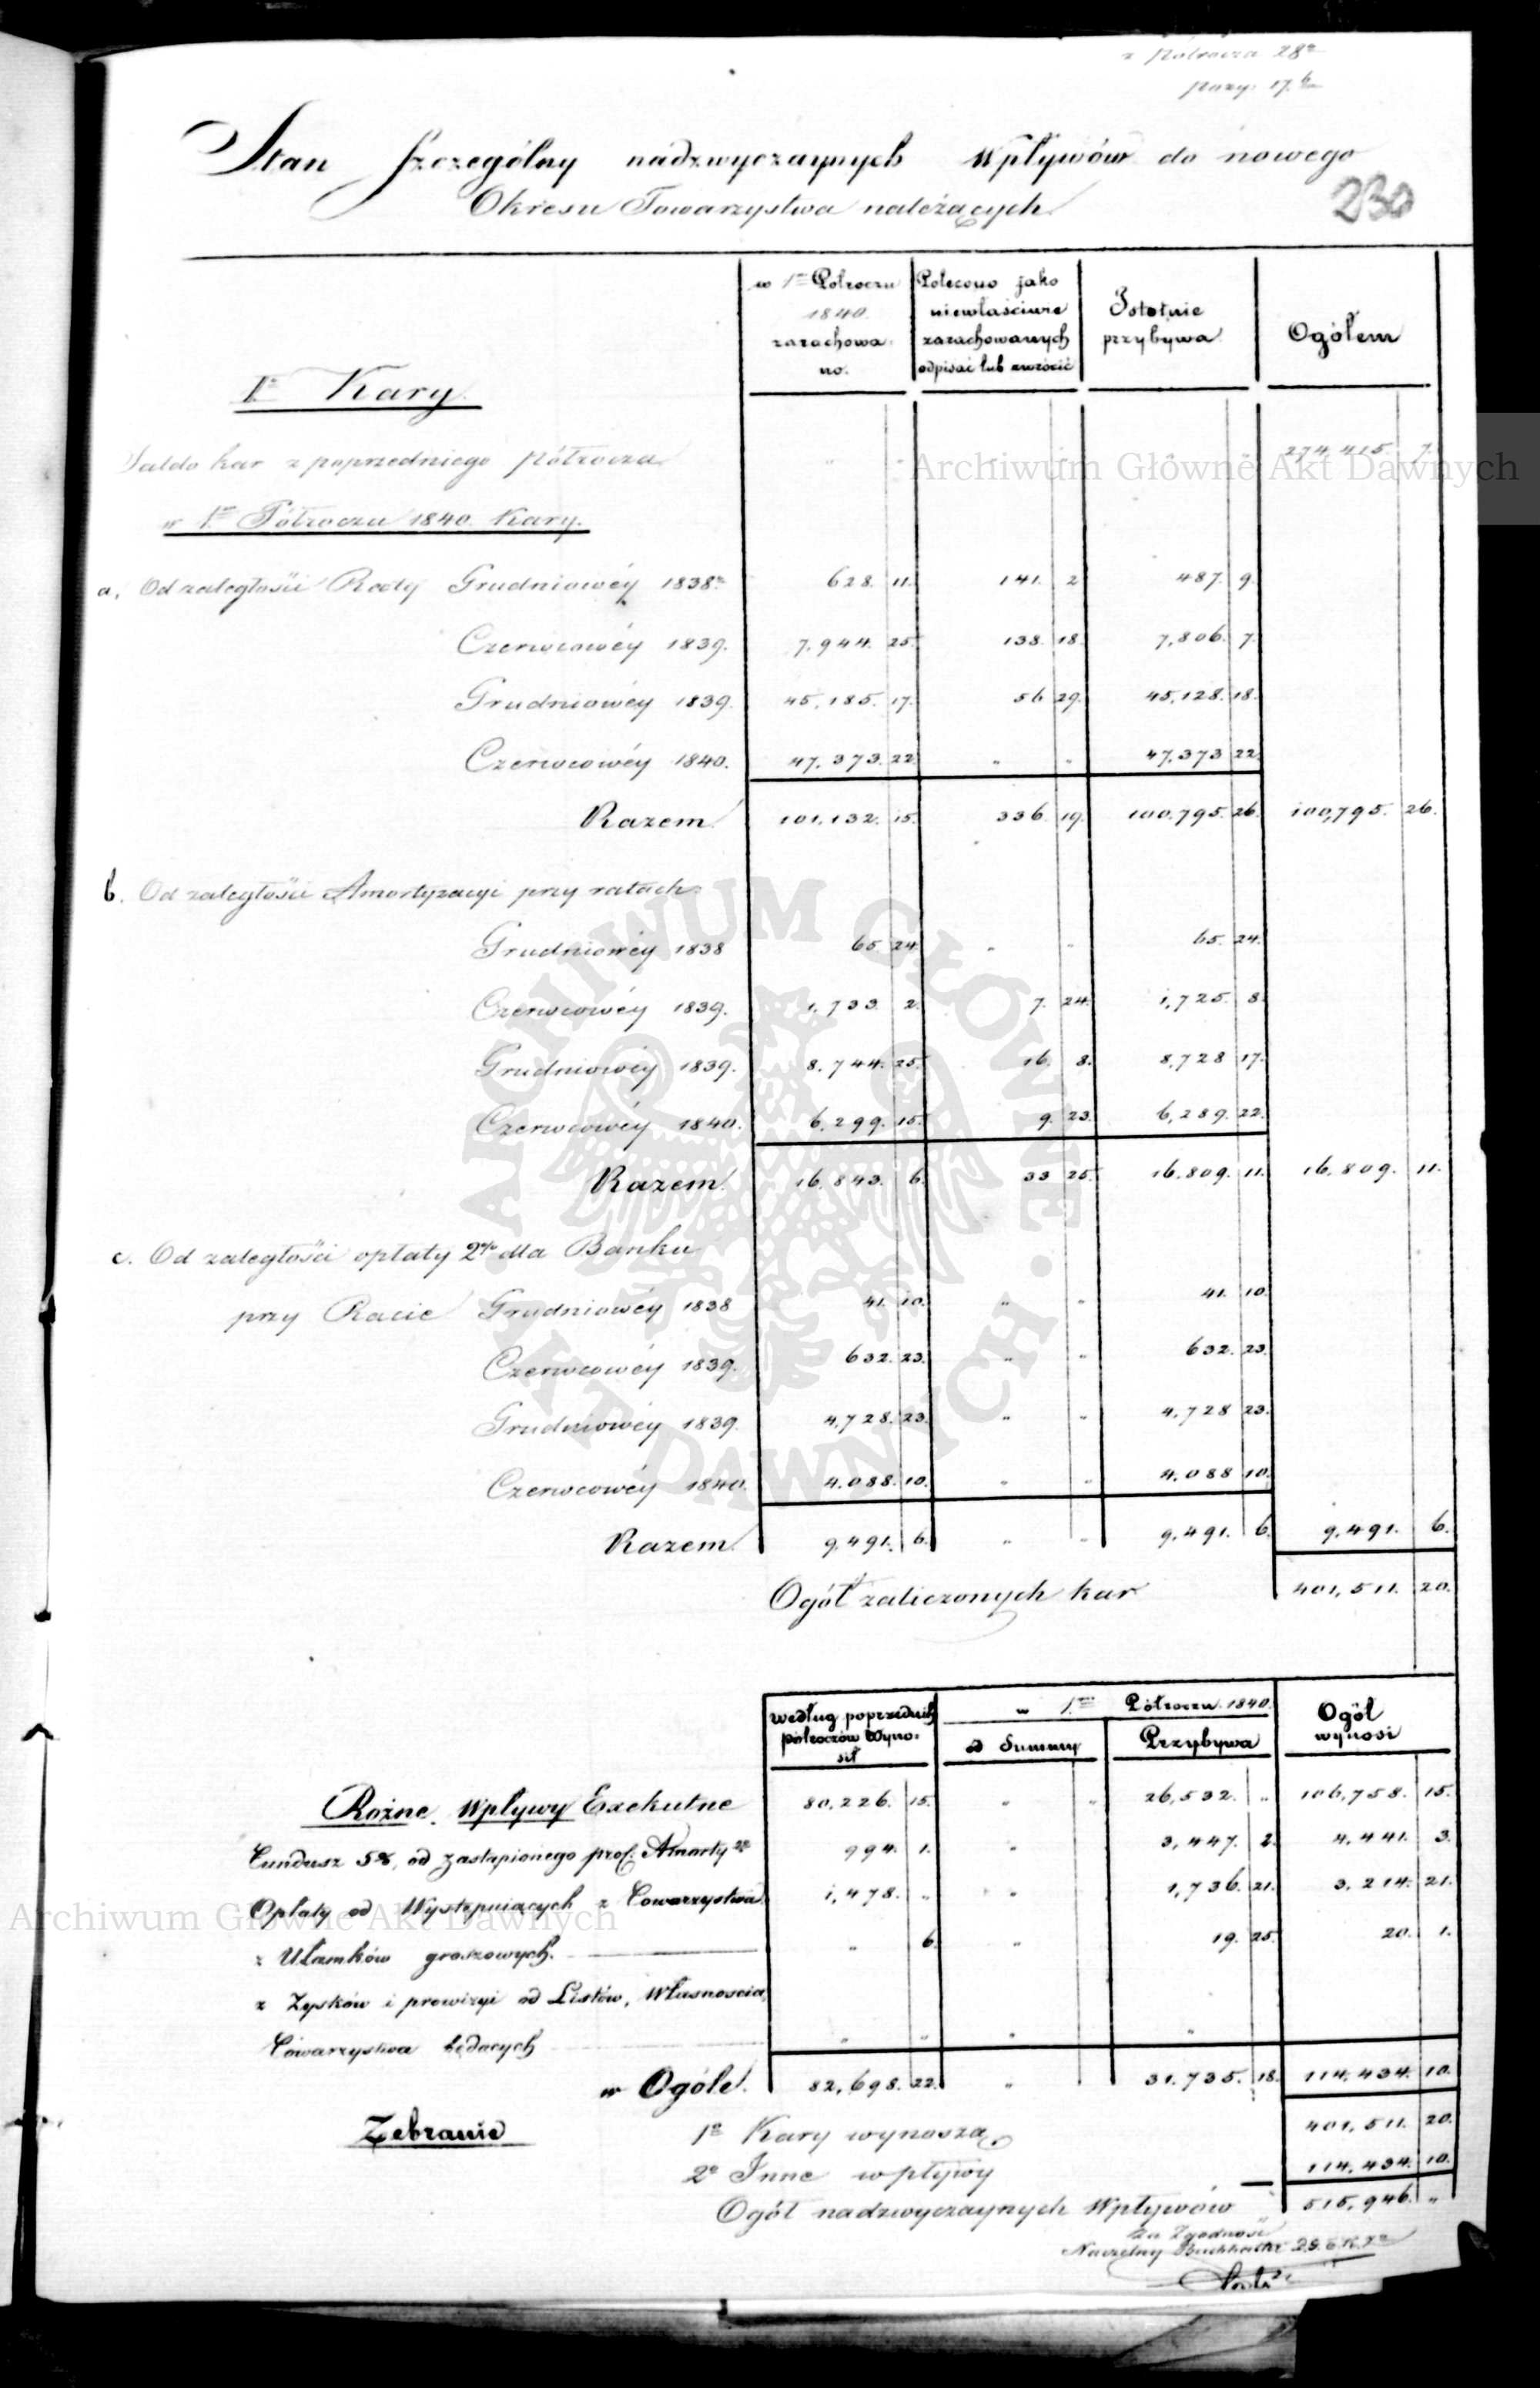 z Półrocza 28º
pozy. 17.
Stan szczególny nadzwyczaynych Wpływów do nowego
230
Okresu Towarzystwa należących
w 1m Półroczu 1840. zarachowano. | Polecono jako niewłaściwie zarachowanych odpisać lub zwrócić | Istotnie przybywa | Ogółem
Iº Kary.
Saldo kar z poprzedniego Półrocza " " " 274,415. 7.
w 1m Półroczu 1840. Kary.
a. Od zaległości Raty Grudniowéy 1838º 628. 11. 141. 2 487. 9.
Czerwcowéy 1839. 7,944. 25. 138. 18. 7,806. 7.
Grudniowéy 1839. 45,185. 17. 56 29. 45,128. 18.
Czerwcowéy 1840. 47,373. 22. " " 47,373 22.
Razem 101,132. 15. 336. 19. 100,795. 26. 100,795. 26.
b. Od zaległości Amortyzacyi przy ratach:
Grudniowéy 1838 65. 24. " " 65. 24.
Czerwcowéy 1839. 1,733. 2. 7. 24. 1,725. 8.
Grudniowéy 1839. 8,744. 25. 16. 8. 8,728 17.
Czerwcowéy 1840. 6,299. 15. 9. 23. 6,289. 22.
Razem 16,843. 6. 33 25. 16,809. 11. 16,809. 11.
c. Od zaległości opłaty 2% dla Banku
przy Racie Grudniowéy 1838 41. 10. " " 41. 10.
Czerwcowéy 1839. 632. 23. " " 632. 23.
Grudniowéy 1839. 4,728. 23. " " 4,728 23.
Czerwcowéy 1840. 4,088. 10. " " 4,088 10.
Razem 9,491. 6. " " 9,491. 6. 9,491. 6.
Ogół zaliczonych kar 401,511. 20.
według poprzednich półroczów wynosił | w 1m Półroczu 1840. od Summy | Przybywa | Ogół wynosi
Rożne Wpływy Exekutne 80,226. 15. " " 26,532. " 106,758. 15.
Fundusz 5%, od zastąpionego prof. Amorty 994. 1. " 3,447. 2. 4,441. 3.
Opłaty od Występuiących z Towarzystwa 1,478. " " 1,736. 21. 3,214. 21.
z Ułamków groszowych. " 6. " 19. 25. 20. 1.
z Zysków i prowizyi od Listów, Własnoscią
Towarzystwa będących " " " "
w Ogóle. 82,698. 22. " 31,735. 18. 114,434. 10.
Zebranie 1º Kary wynoszą 401,511. 20.
2º Inne wpływy 114,434. 10.
Ogół nadzwyczaynych Wpływów 515,946. "
Za Zgodność
Naczelny Buchhalter
Archiwum Główne Akt Dawnych
ARCHIWUM GŁÓWNE AKT DAWNYCH
Archiwum Główne Akt Dawnych